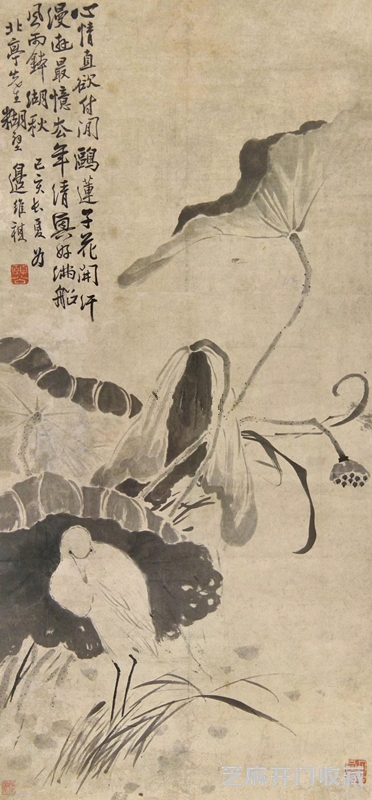 心情直欲付閒鷗蓮子花開汗
漫游最憶去年清興好滿船
風雨湖秋 己亥長夏為
北亭先生 邊維祺
芝麻开门收藏